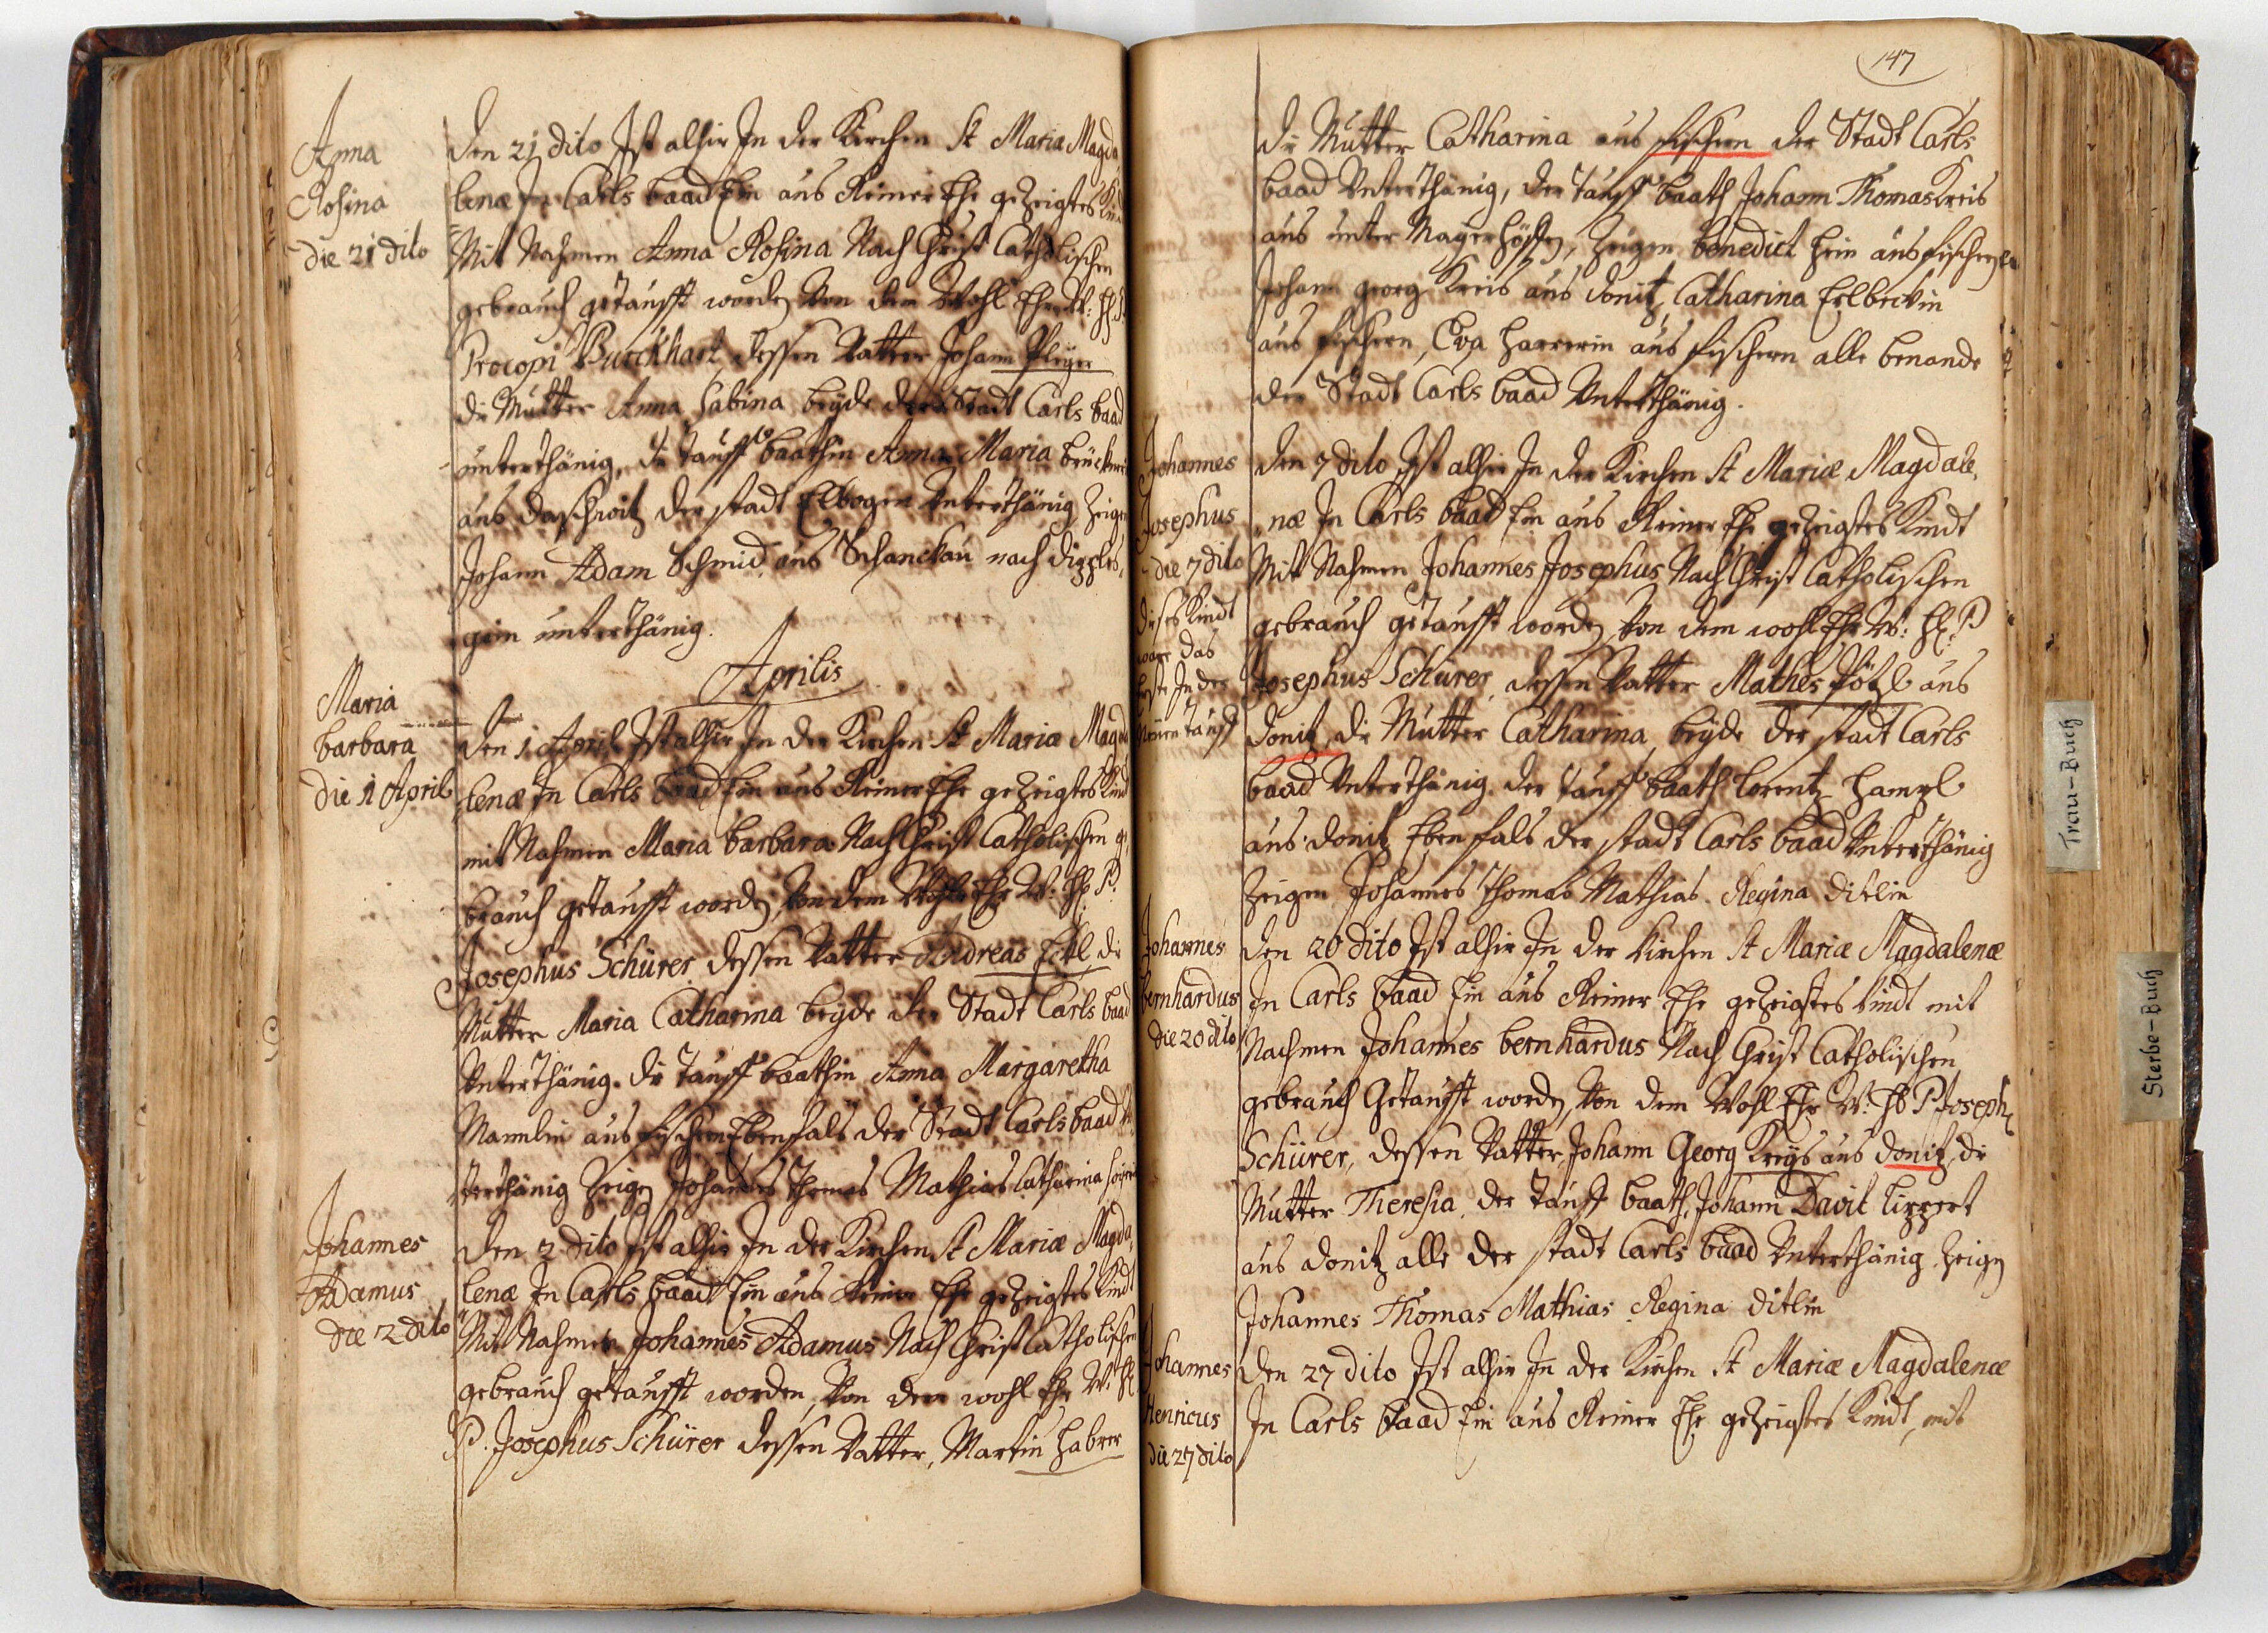 Anna
Rosina
die 21 dito
Den 21 dito Ist alhir In der Kirchen St Maria Magda
lenæ In Carls baad Ein aus Reiner Ehe gezeigtes Kind
Mit Nahmen Anna Rosina Nach Christ Catholischen
gebrauch getaufft worden Von dem Wohl Ehr W: H: P.
Procopi Burckhart, dessen Vatter Johann Pleyer
die Mutter Anna Sabina beyde der Stadt Carls baad
unterthänig, die tauff baathin Anna Maria
aus daschwitz der stadt Elbogen Unterthänig Zeigen
Johann Adam Schmid aus Schanckau nach
unterthänig.
Aprilis
Maria
barbara
die 1 April
Den 1 April Ist alhir In der Kirchen St Maria Magda
lenæ In Carls baad Ein aus Reiner Ehe gezeigtes Kind
mit Nahmen Maria barbara Nach Christ Catholischen ge
brauch getaufft worden, Von dem Wohl Ehr W: H: P.
Josephus Schürer dessen Vatter Andreas Ertl die
Mutter Maria Catharina beyde der Stadt Carls baad
Unterthänig. die tauff baathin Anna Margaretha
Mannlin aus fischern Ebenfals der Stadt Carls baad Un
terthänig Zeigen Johannes Thomas Mathias Catharina
Johannes
Adamus
die 2 dito
Den 2 dito Ist alhir In der Kirchen St Mariæ Magda
lenæ In Carls baad Ein aus Reiner Ehe gezeigtes Kindt
Mit Nahmen Johannes Adamus Nach Christ Catholischen
gebrauch getaufft worden, Von dem wohl Ehr W: H:
P. Josephus Schürer dessen Vatter, Martin Habrer
147
die Mutter Catharina aus fischern der Stadt Carls
baad Unterthänig, der tauff baath Johann Thomas Kreis
aus unter Mayerhöffen, Zeugen benedict Hein aus fischern
Johann georg Kreis aus donitz, Catharina Erlbeckin
aus fischern, Eva Harrerin aus fischern alle benande
der Stadt Carls baad Unterthänig.
Johannes
Josephus
die 7 dito
dises Kindt
ware das
Erste In der
Neuen tauff
Den 7 dito Ist alhir In der Kirchen St Mariæ Magdale
næ In Carls baad Ein aus Reiner Ehe gezeigtes Kindt
Mit Nahmen Johannes Josephus Nach Christ Catholischen
gebrauch getaufft worden, Von dem wohl Ehr W: H: P
Josephus Schürer, dessen Vatter Mathes Pötzl aus
donitz, die Mutter Catharina, beyde der stadt Carls
baad Unterthänig. der tauff baath Lorentz Hampl
aus donitz Ebenfals der stadt Carls baad Unterthänig
Zeigen Johannes Thomas Mathias. Regina Ditlin
Johannes
bernhardus
die 20 dito
Den 20 dito Ist alhir In der Kirchen St Mariæ Magdalenæ
In Carls baad Ein aus Reiner Ehe gezeigtes Kindt mit
Nahmen Johannes bernhardus Nach Christ Catholischen
gebrauch Getaufft worden, Von dem Wohl Ehr W: H: P Joseph
Schürer, dessen Vatter, Johann Georg Kreys aus donitz, die
Mutter Theresia, der tauff baath, Johann Davit Lippert
aus donitz alle der stadt Carls baad Unterthänig Zeigen
Johannes Thomas Mathias Regina Ditlin
Johannes
Henricus
die 27 dito
Den 27 dito Ist alhir In der Kirchen St Mariæ Magdalenæ
In Carls baad Ein aus Reiner Ehe gezeigtes Kindt, mit
Trau-Buch
Sterbe-Buch